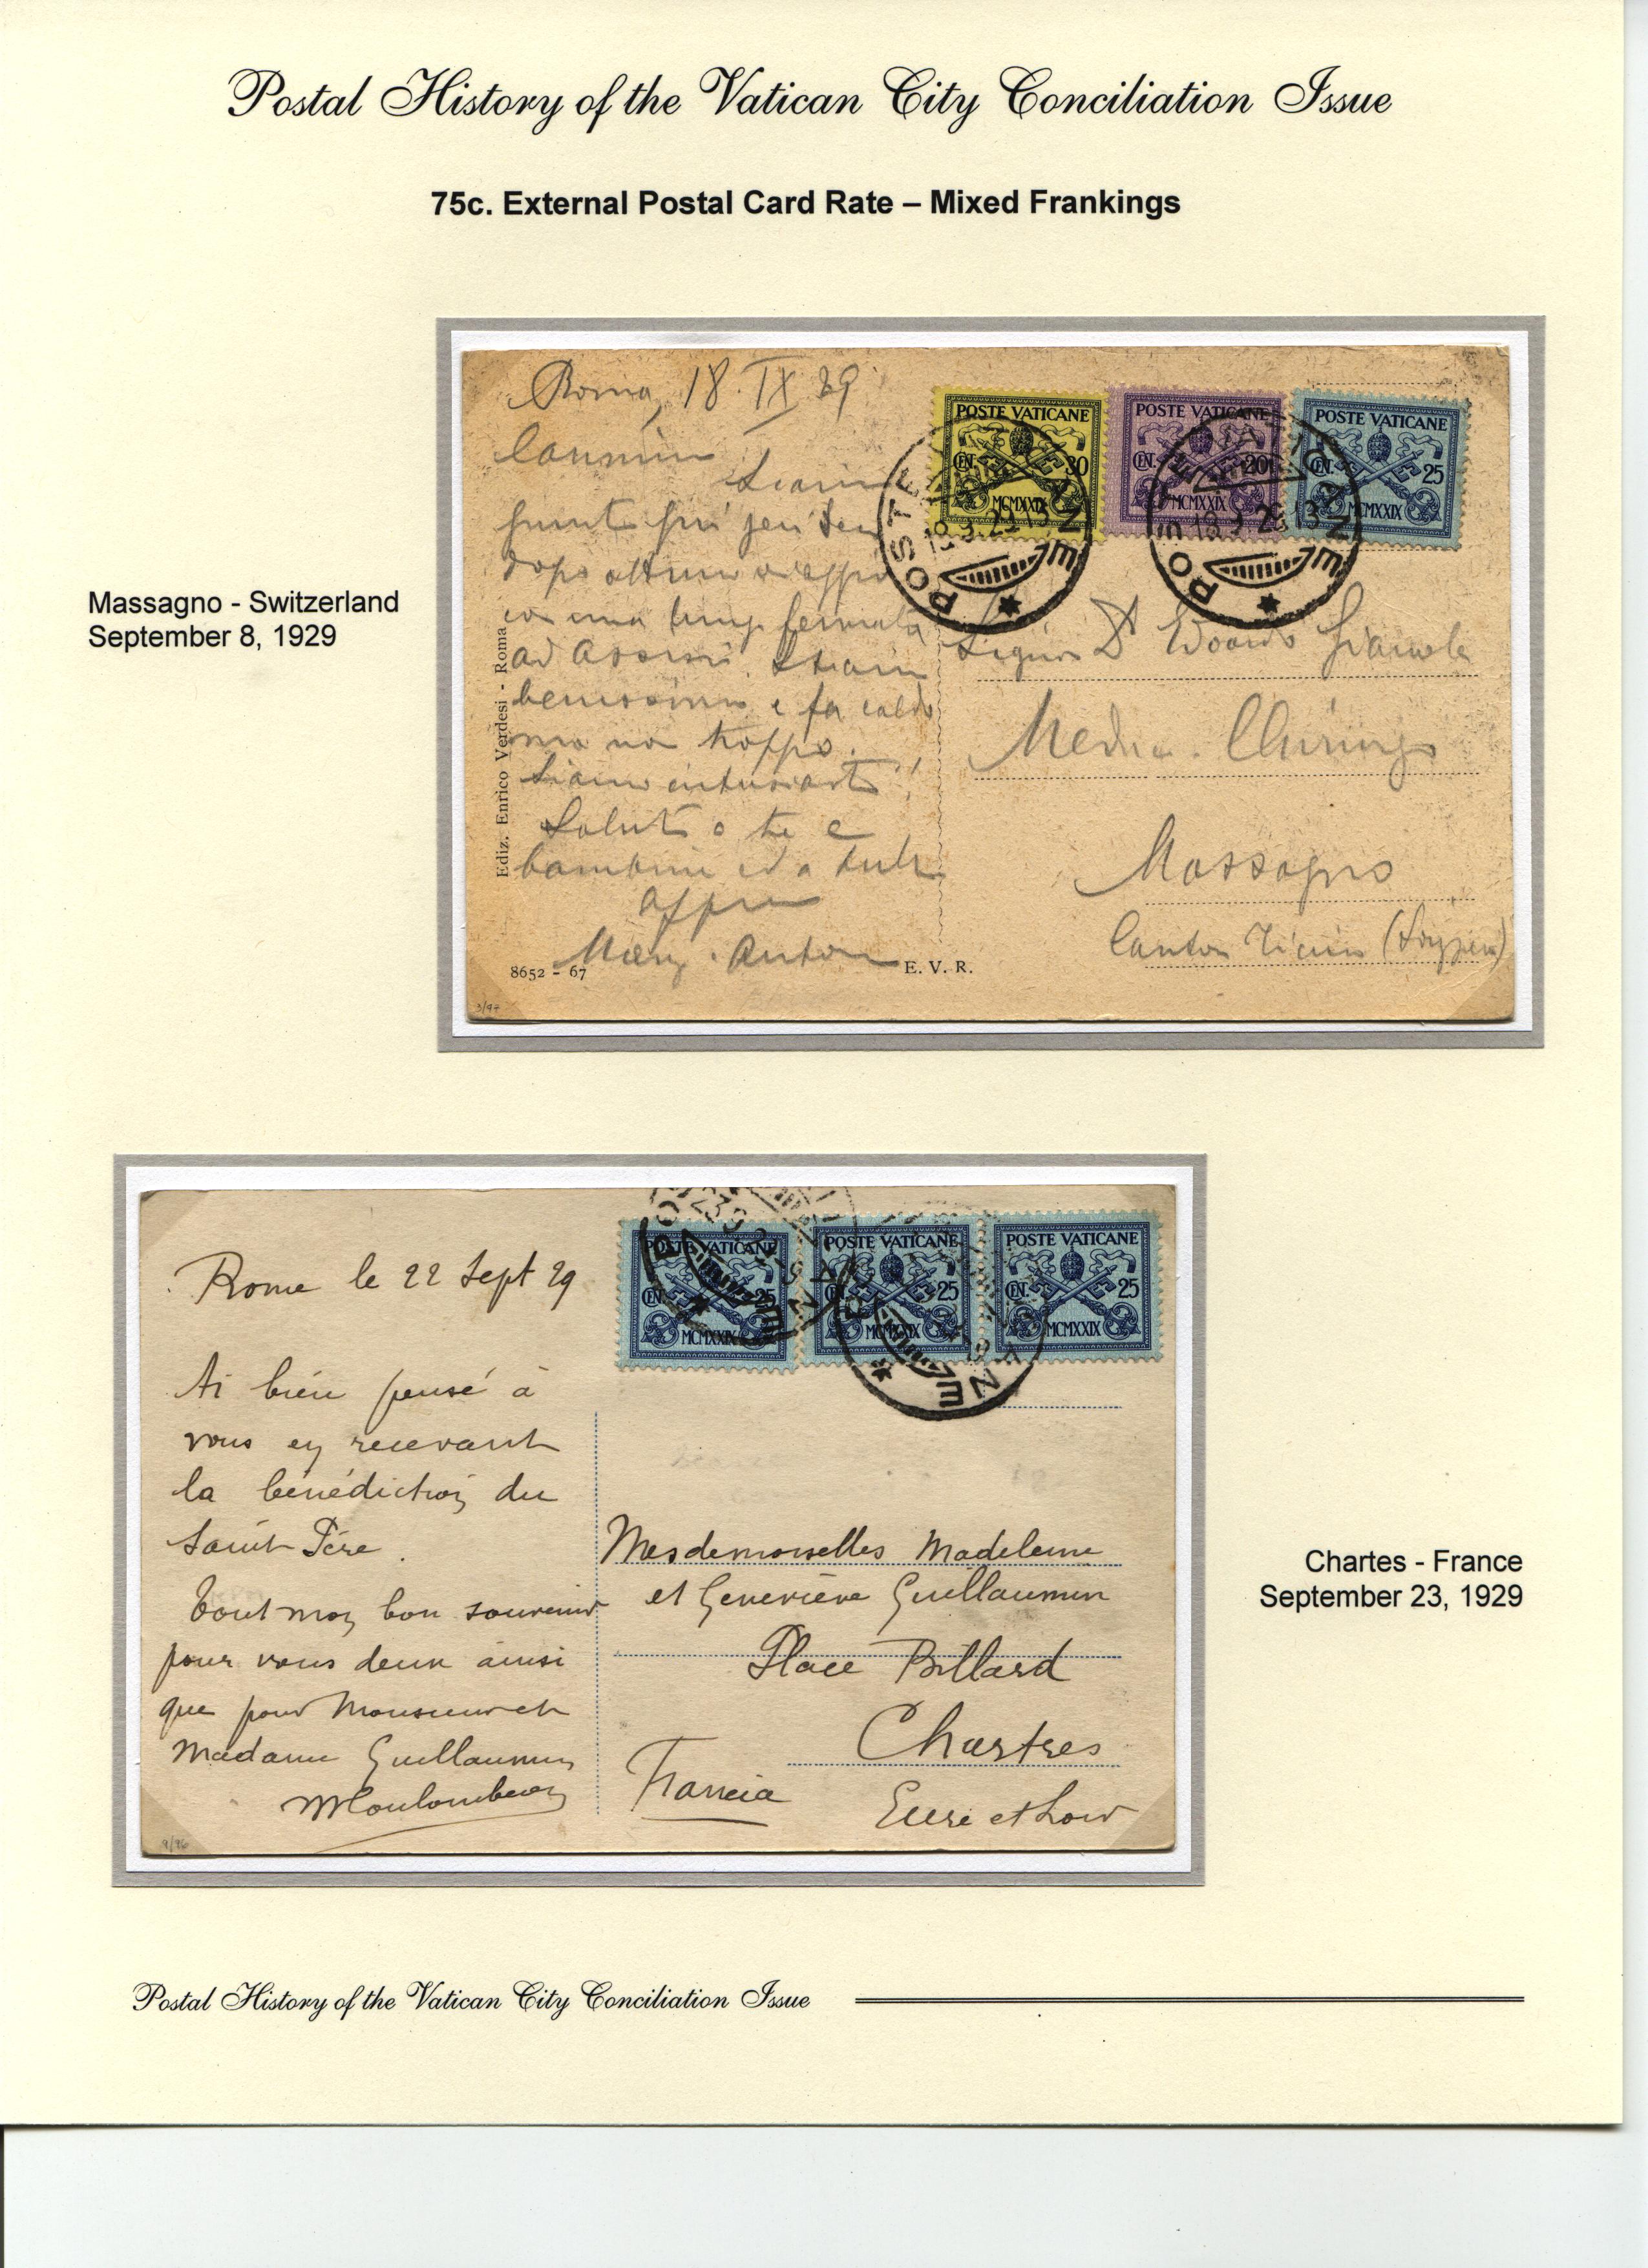 Postal History of the Vatican City Conciliation Issue
75c. External Postal Card Rate – Mixed Frankings
Massagno - Switzerland
September 8, 1929
Roma, 18. IX 29
POSTE VATICANE
CEN. 30
MCMXXIX
POSTE VATICANE
CEN. 20
MCMXXIX
POSTE VATICANE
CEN. 25
MCMXXIX
POSTE
NE
PO
NE
dopo
ad Assisi. Stiamo
benissimo e fa caldo
ma non troppo.
Siamo entusiasti!
Saluti a te e
bambini ed a tutti
Mary. Anton
Edoardo
Massagno
Canton Ticino
Ediz. Enrico Verdesi - Roma
8652 - 67
E. V. R.
3/97
Rome le 22 Sept 29
Ai bien pensé à
vous en recevant
la bénédiction du
Saint Père.
Tout mon bon souvenir
pour vous deux ainsi
que pour Monsieur et
Madame Guillaumin
POSTE VATICANE
CEN. 25
MCMXXIX
POSTE VATICANE
CEN. 25
MCMXXIX
POSTE VATICANE
CEN. 25
MCMXXIX
Mesdemoiselles Madeleine
et Geneviève Guillaumin
Place Billard
Chartres
Francia
Eure et Loir
9/96
Chartes - France
September 23, 1929
Postal History of the Vatican City Conciliation Issue